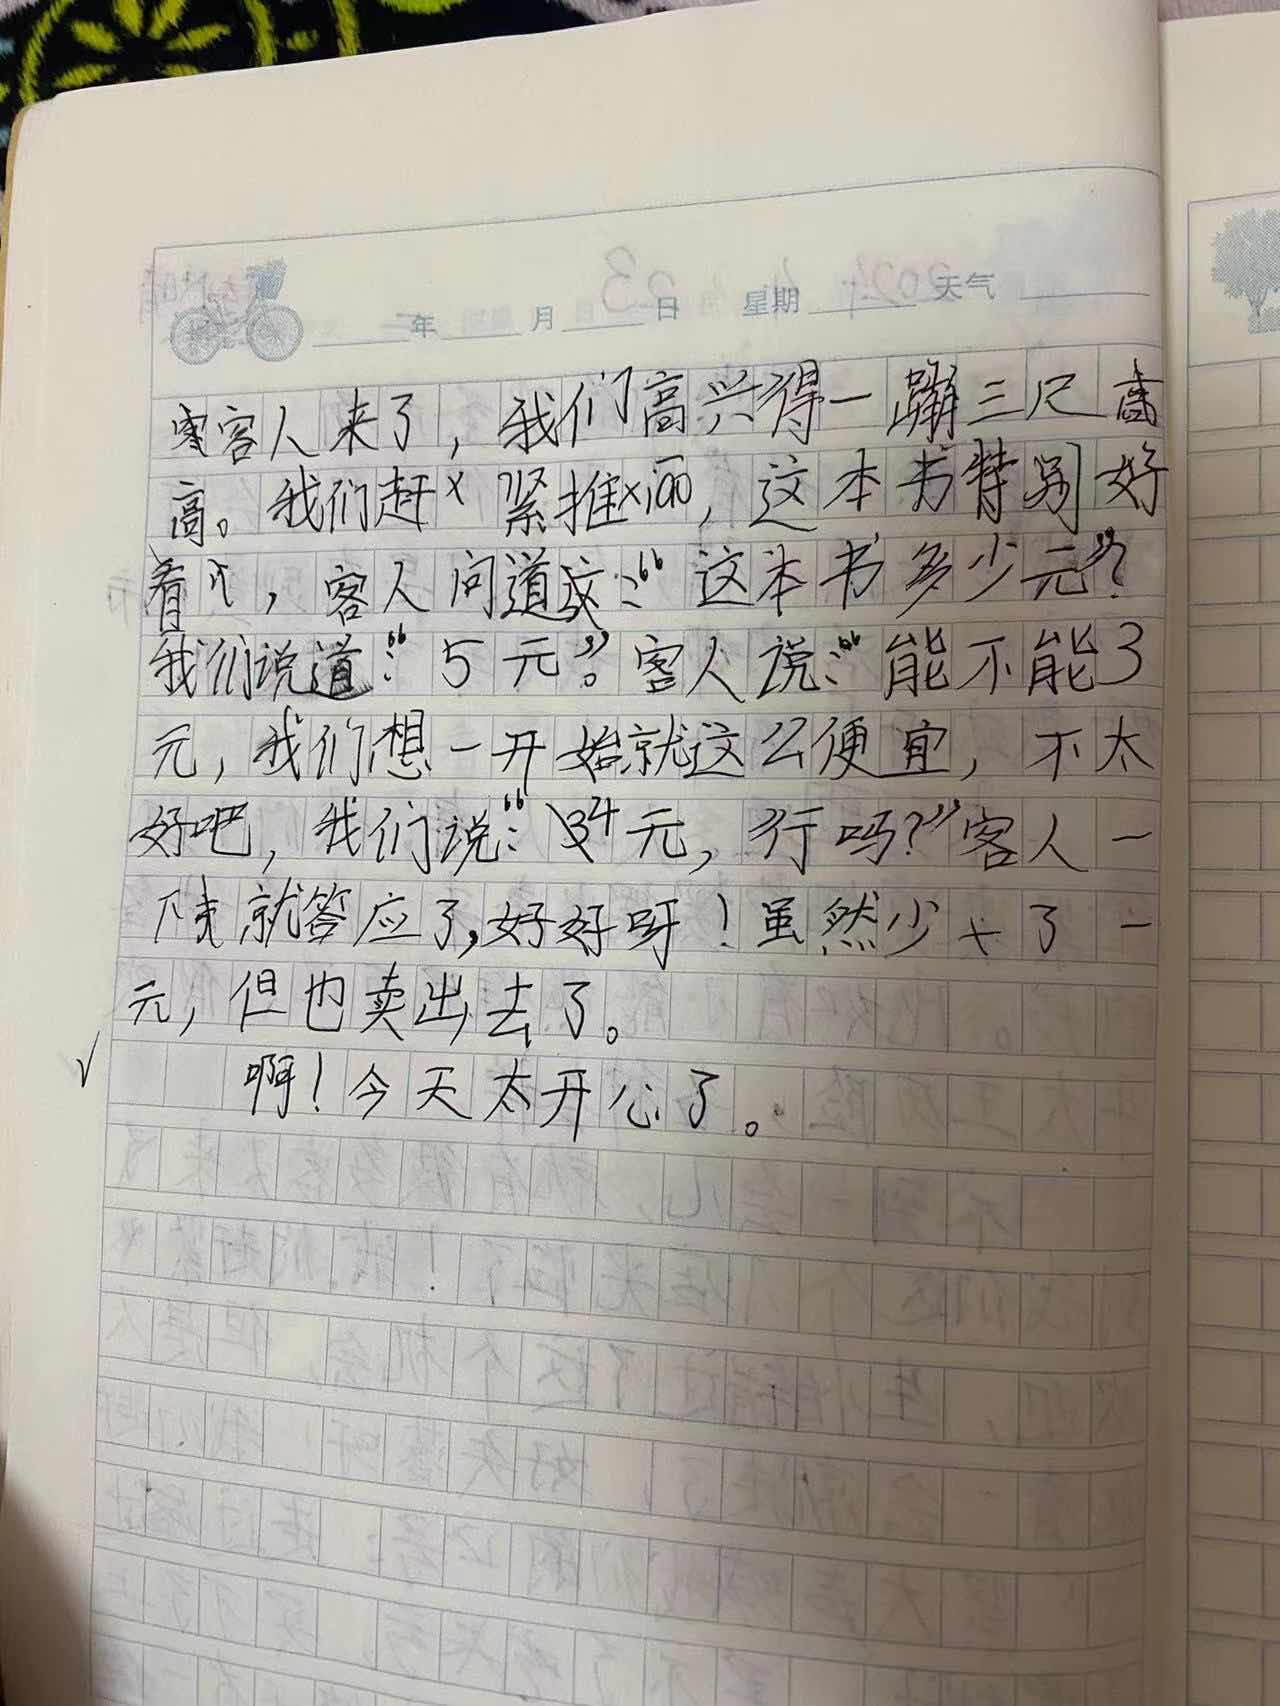 年 月 日 星期 天气
客人来了，我们高兴得一蹦三尺高
高。我们赶紧推，这本书特别好
看，客人问道：“这本书多少元”？
我们说道：“5元”。客人说：“能不能3
元，我们想一开始就这么便宜，不太
好吧，我们说：“4元，行吗？”客人一
下就答应了，好好呀！虽然少了一
元，但也卖出去了。
啊！今天太开心了。